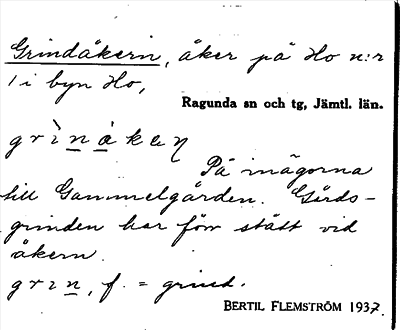 Grindåkern, åker på Ho n:r
1 i byn Ho,
Ragunda sn och tg, Jämtl. län.
grìnåkeɳ
På inägorna
till Gammelgården. Gårds-
grinden har förr stått vid
åkern.
grɪn, f. = grind.
BERTIL FLEMSTRÖM 1937.